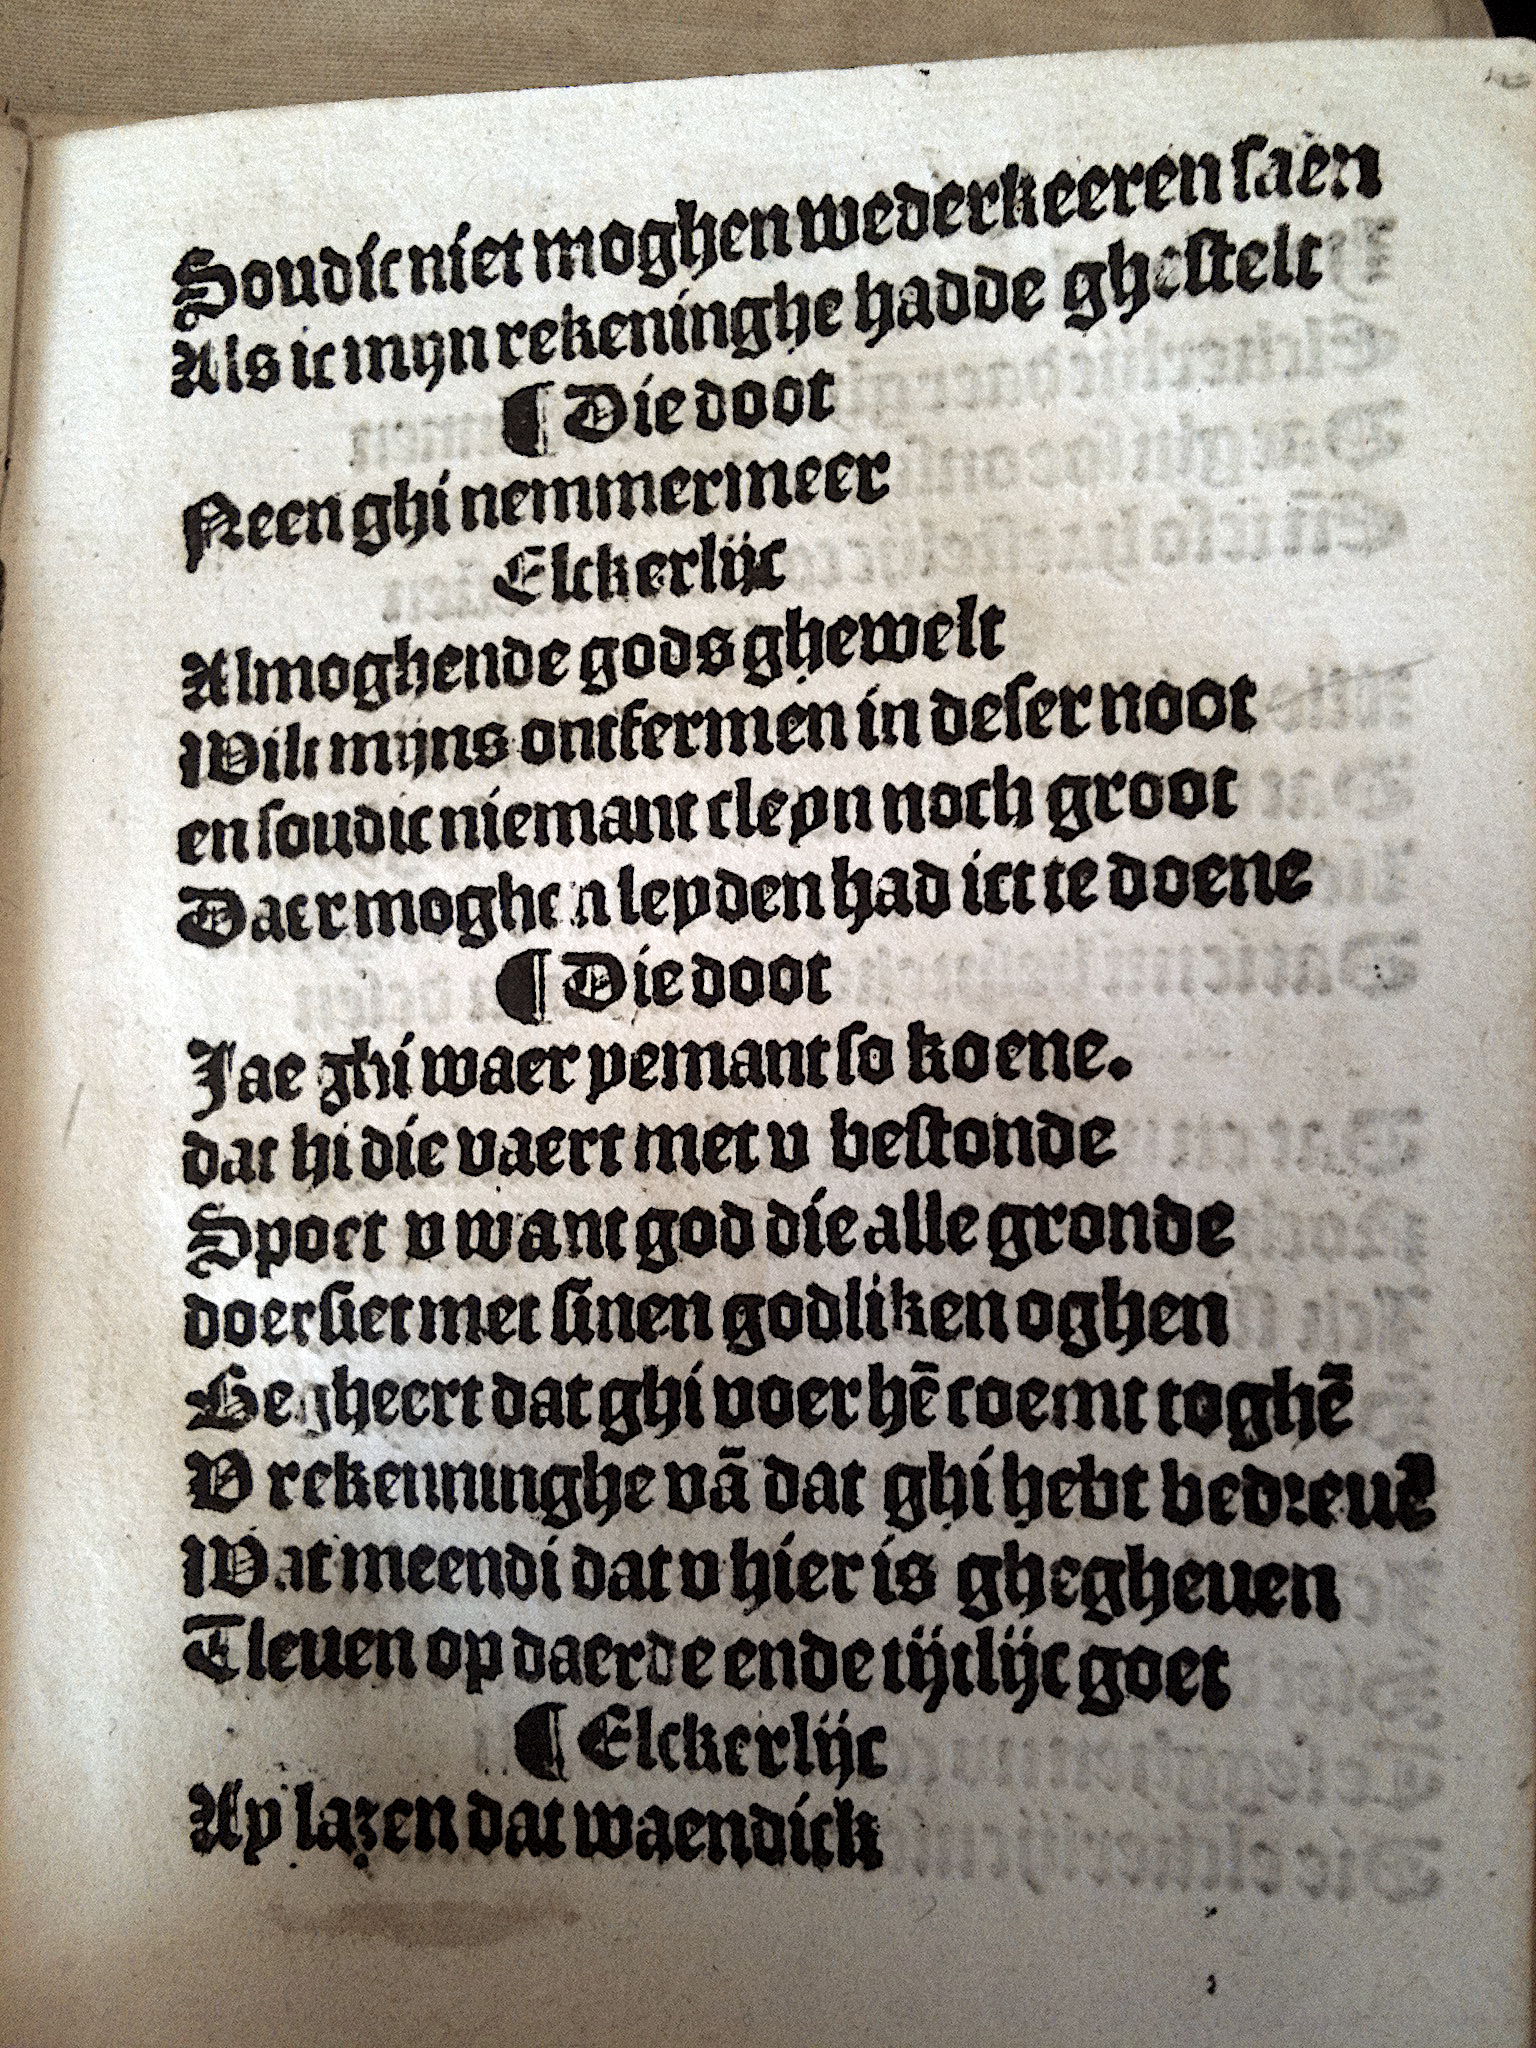 Soudic niet moghen wederkeeren saen
Als ic mijn rekeninghe hadde ghestelt
¶ Die doot
Neen ghi nemmermeer
Elckerlijc
Almoghende gods ghewelt
Wilt mijns ontfermen in deser noot
en soudic niemant cleyn noch groot
Daer moghen leyden had ict te doene
¶ Die doot
Jae ghi waer yemant so koene.
dat hi die vaert met v bestonde
Spoet v want god die alle gronde
doersiet met sinen godliken oghen
Begheert dat ghi voer hē coemt toghē
V rekenninghe vā dat ghi hebt bedreuē
Wat meendi dat v hier is ghegheuen
Tleuen op daerde ende tijtlijc goet
¶ Elckerlijc
Ay lazen dat waendick